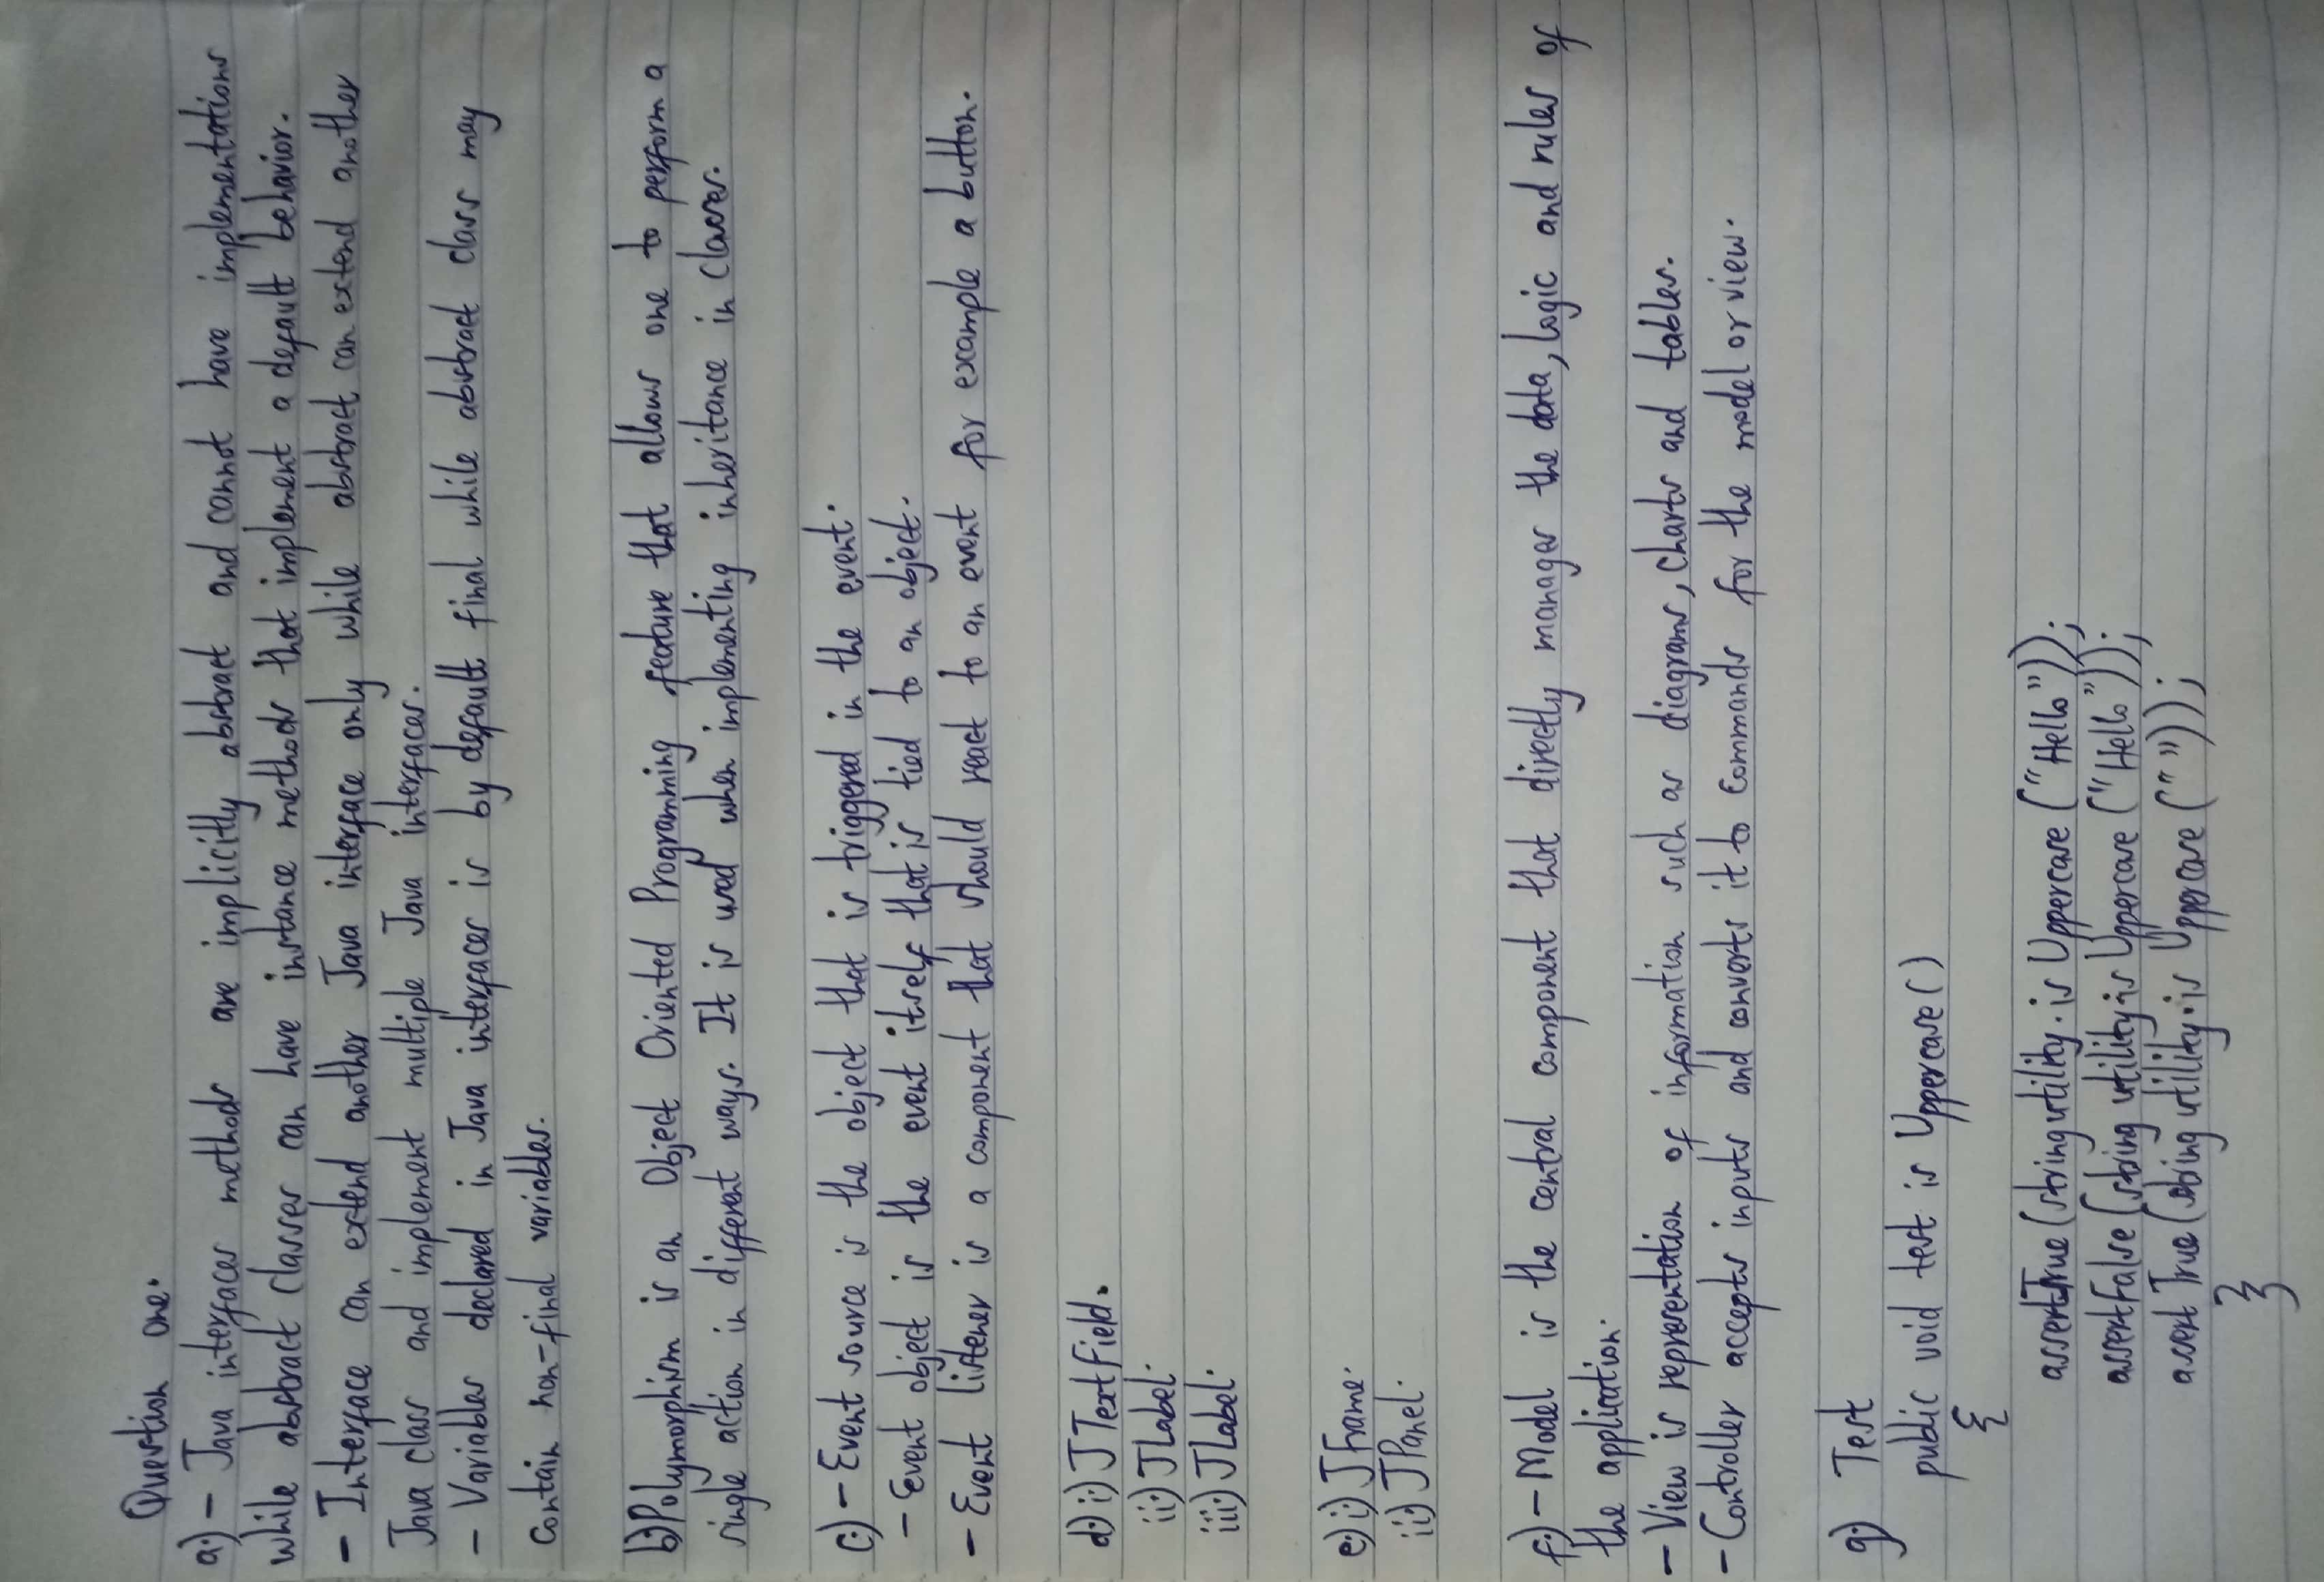 Question one.
a.) - Java interfaces methods are implicitly abstract and cannot have implementations
while abstract classes can have instance methods that implement a default behavior.
- Interface can extend another Java interface only while abstract can extend another
Java class and implement multiple Java interfaces.
- Variables declared in Java interfaces is by default final while abstract class may
contain non-final variables.
b.) Polymorphism is an Object Oriented Programming feature that allows one to perform a
single action in different ways. It is used when implementing inheritance in classes.
c.) - Event source is the object that is triggered in the event.
- Event object is the event itself that is tied to an object.
- Event listener is a component that should react to an event for example a button.
d.) i.) JTextField.
ii.) JLabel.
iii.) JLabel.
e.) i.) JFrame.
ii.) JPanel.
f.) - Model is the central component that directly manages the data, logic and rules of
the application.
- View is representation of information such as diagrams, charts and tables.
- Controller accepts inputs and converts it to commands for the model or view.
g.) Test
public void test is Uppercase ()
{
assertTrue (string utility. is Uppercase ("Hello"));
assertFalse (string utility. is Uppercase ("Hello"));
assert True (string utility. is Uppercase (" "));
}